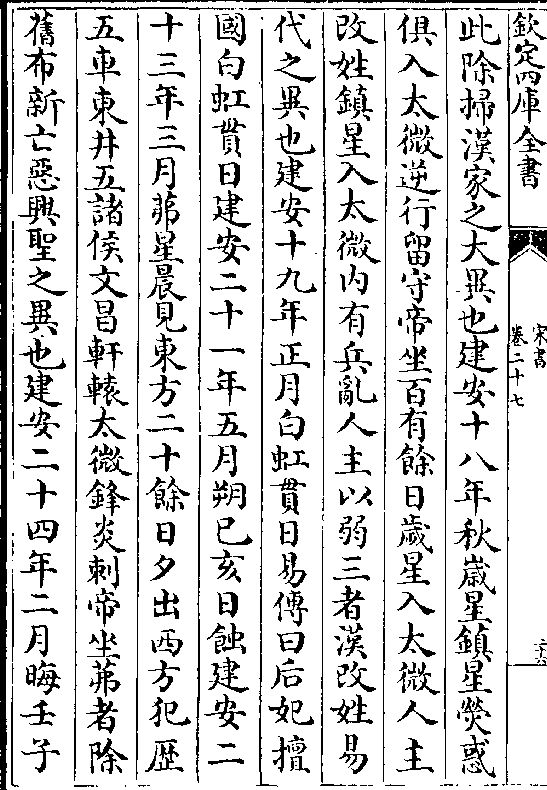 欽定四庫全書
宋書
卷二十七
二十六
此除掃漢家之大異也建安十八年秋歲星鎮星熒惑
俱入太微逆行留守帝坐百有餘日歲星入太微人主
改姓鎮星入太微内有兵亂人主以弱三者漢改姓易
代之異也建安十九年正月白虹貫日易傳曰后妃擅
國白虹貫日建安二十一年五月朔已亥日蝕建安二
十三年三月茀星晨見東方二十餘日夕出西方犯歴
五車東井五諸侯文昌軒轅太微鋒炎刺帝坐茀者除
舊布新亡惡興聖之異也建安二十四年二月晦壬子